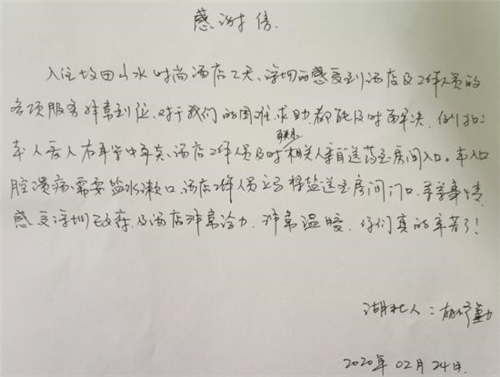 感谢信.
入住坂田山水时尚酒店2天、深切的感受到酒店及工作人员的
各项服务非常到位、对于我们的困难求助都能及时解决、例如:
本人 右耳 中耳炎、酒店工作人员及时联系相关人员 送药至房间 口、本人口
腔溃疡需要盐水漱口、酒店工作人员立马将盐送至房间门口、 事情
感受深圳政府及酒店非常给力、非常温暖、你们真的辛苦了!
湖北人:胡 勤
2020年02月24日.